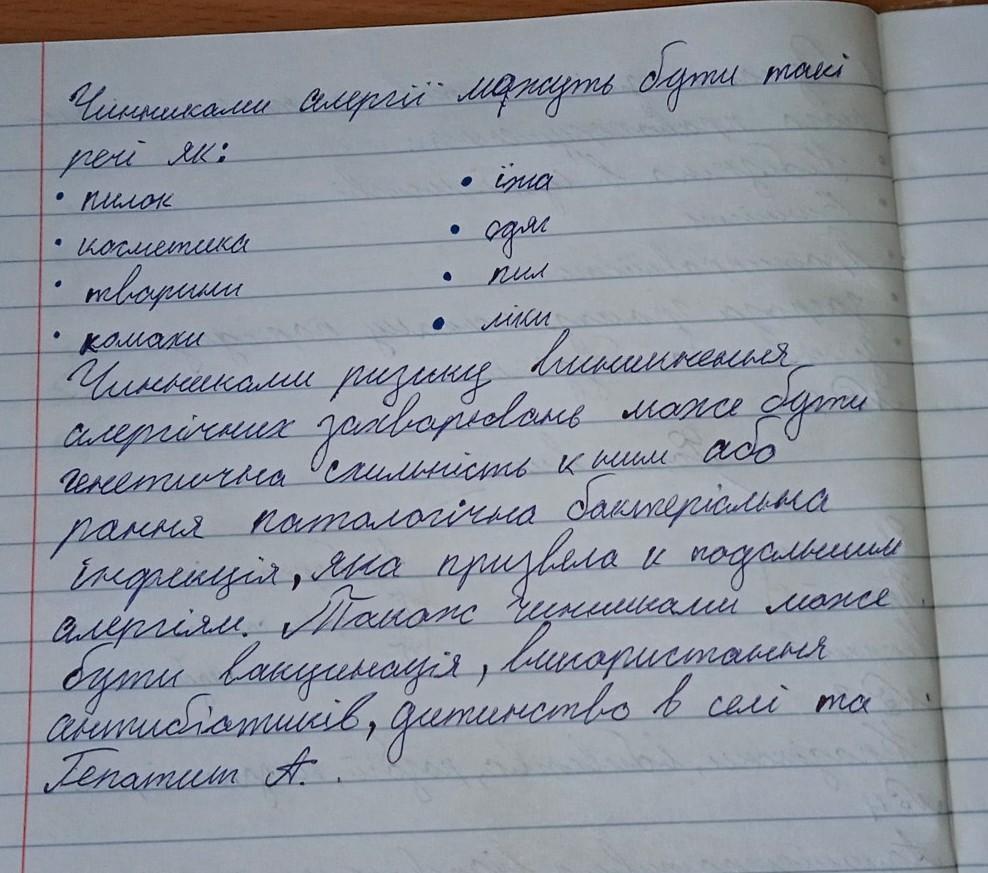 Чинниками алергії можуть бути такі
речі як:
• пилок
• косметика
• тварини
• комахи
• їжа
• одяг
• пил
• ліки
Чинниками ризику виникнення
алергічних захварювань може бути
генетична схильність к ним або
рання патологічна бактеріальна
інфекція, яка призвела к подальшим
алергіям. Також чинниками може
бути вакцинація, використання
антибіотиків, дитинство в селі та
Гепатит А.